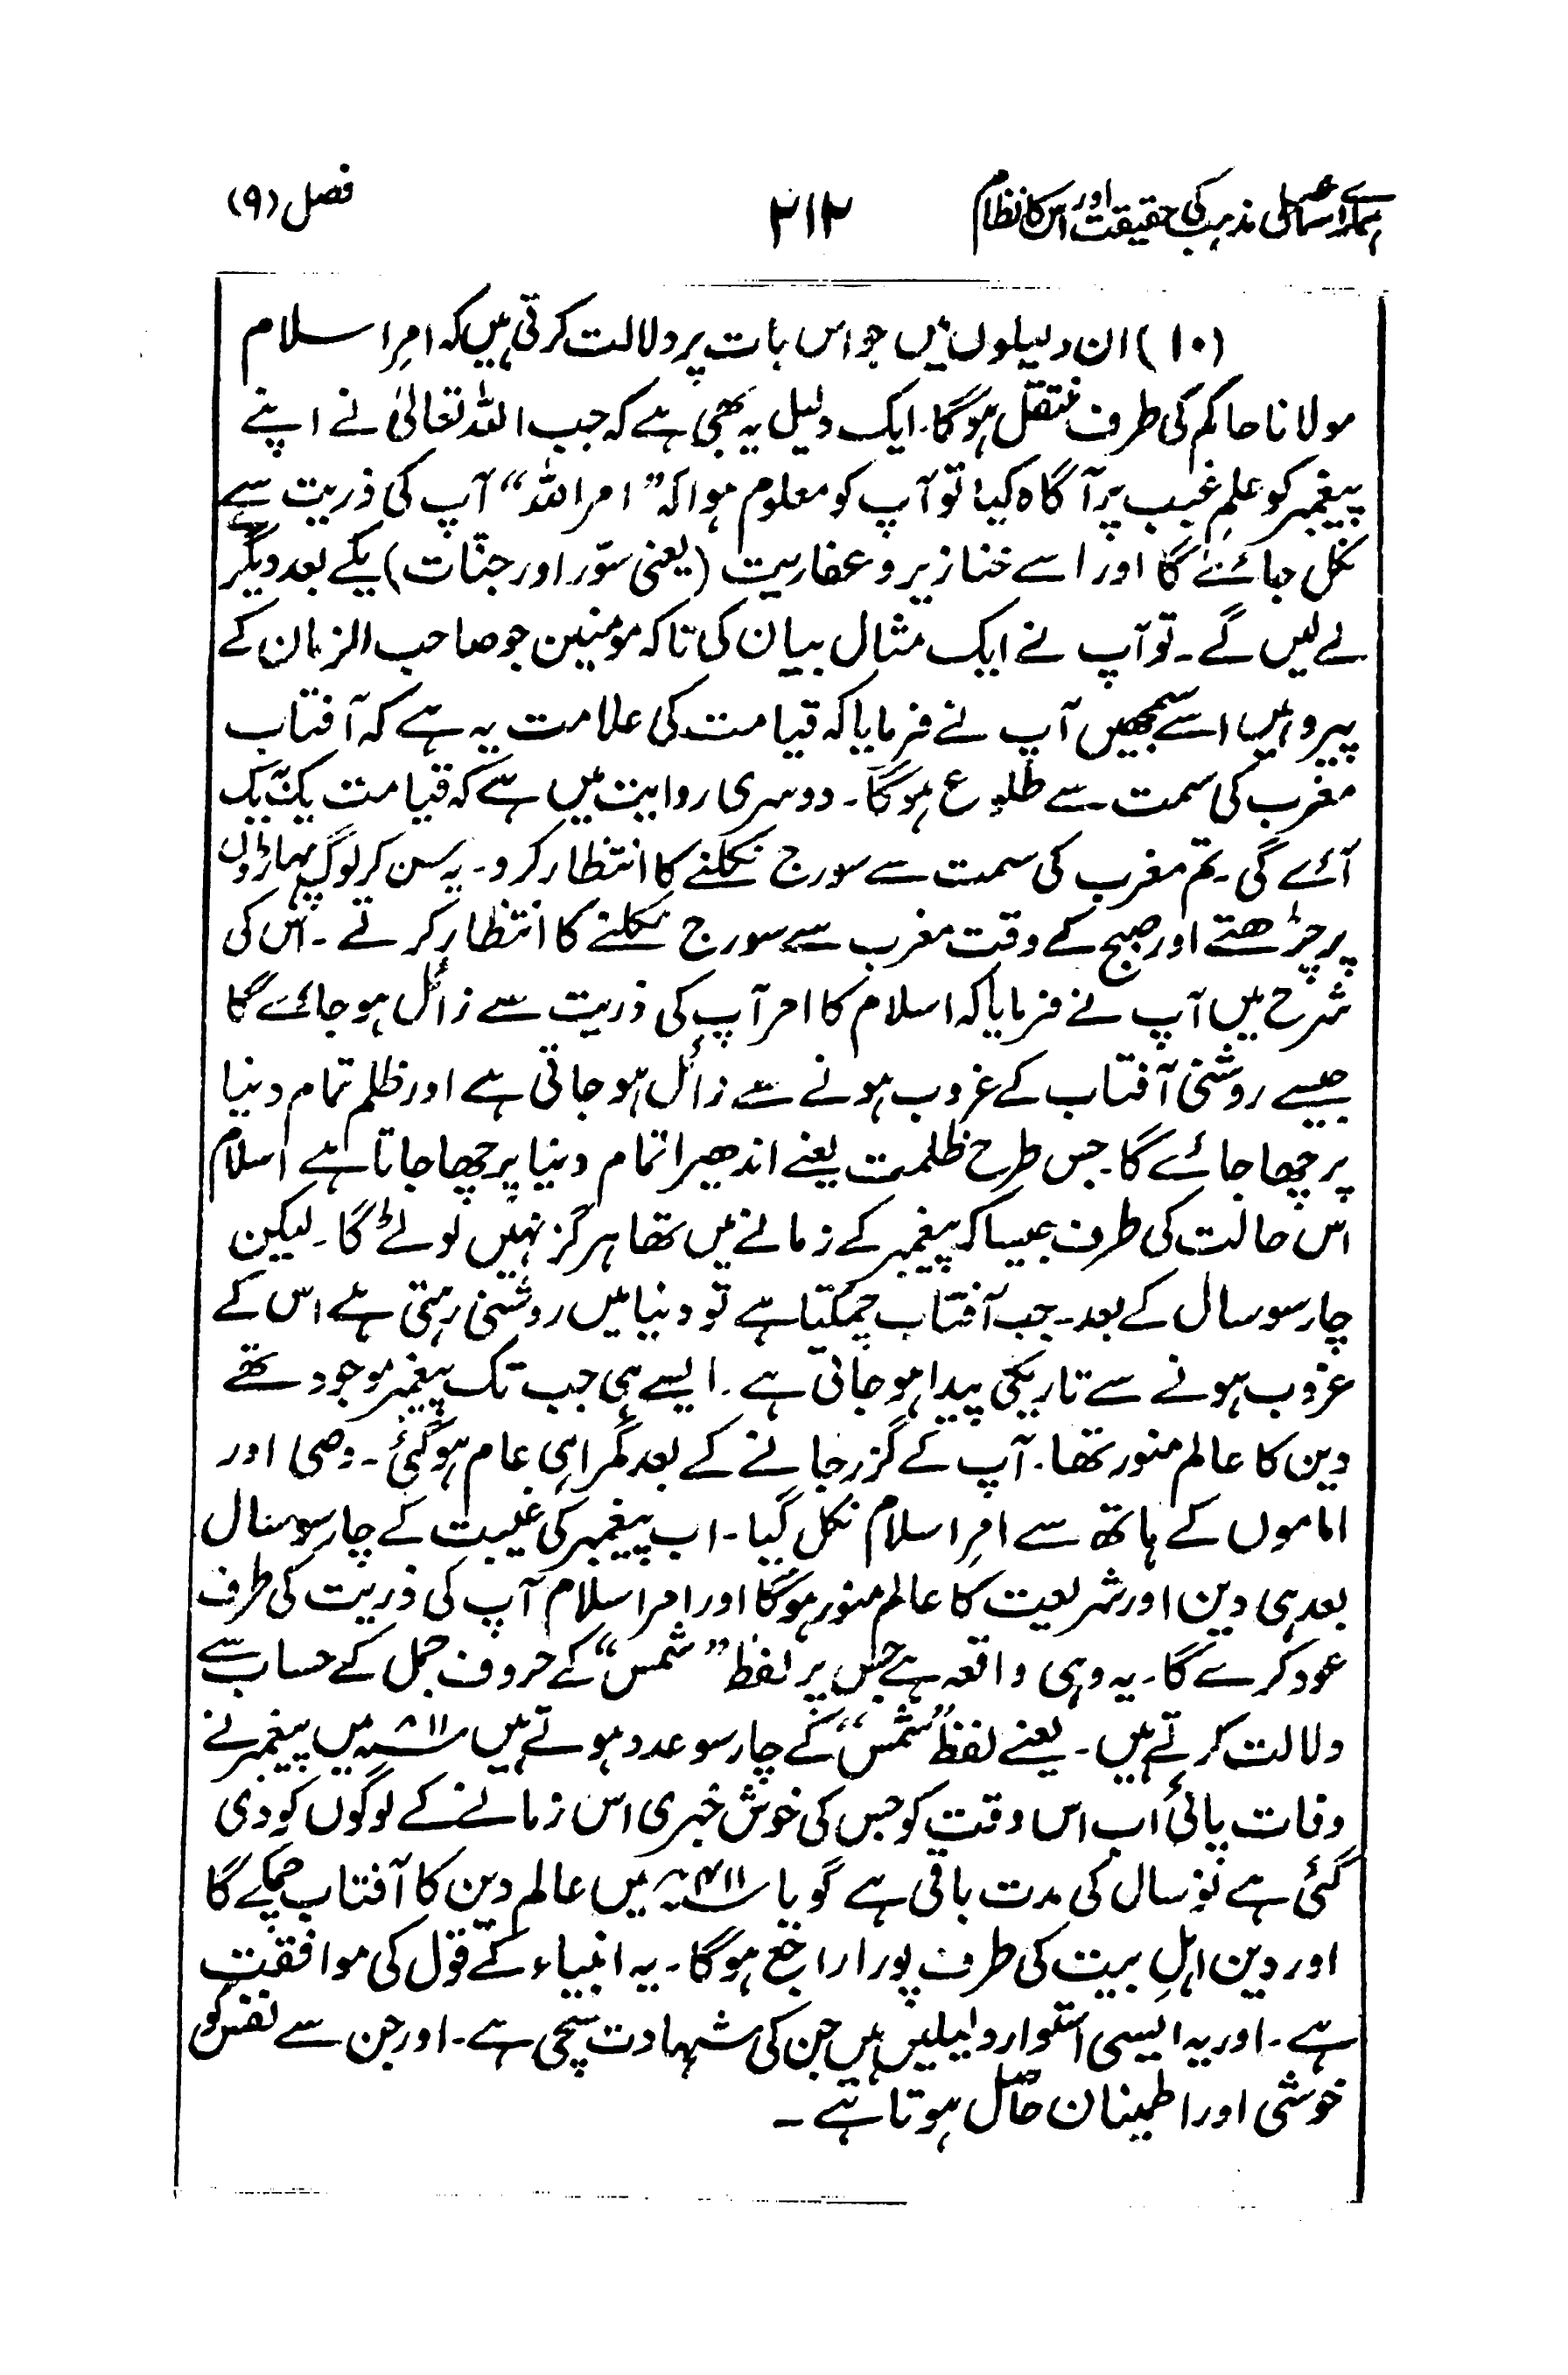 ہمارے اسماعیلی مذہب کی حقیقت اور اس کا نظام ۲۱۲ فصل (۹)
(۱۰) ان دلیلوں میں جو اس بات پر دلالت کرتی ہیں کہ امرِ اسلام
مولانا حاکم کی طرف منتقل ہوگا۔ ایک دلیل یہ بھی ہے کہ جب اللہ تعالیٰ نے اپنے
پیغمبر کو علمِ غیب پر آگاہ کیا تو آپ کو معلوم ہوا کہ ”امر اللہ“ آپ کی ذریت سے
نکل جائے گا اور اسے خنازیر و عفاریت (یعنی سوّر اور جنّات) یکے بعد دیگر
لے لیں گے۔ تو آپ نے ایک مثال بیان کی تاکہ مومنین جو صاحب الزمان کے
پیرو ہیں اسے سمجھیں آپ نے فرمایا کہ قیامت کی علامت یہ ہے کہ آفتاب
مغرب کی سمت سے طلوع ہوگا۔ دوسری روایت میں ہے کہ قیامت یک بیک
آئے گی۔ تم مغرب کی سمت سے سورج نکلنے کا انتظار کرو۔ یہ سن کر لوگ پہاڑوں
پر چڑھتے اور صبح کے وقت مغرب سے سورج نکلنے کا انتظار کرتے۔ اس کی
شرح میں آپ نے فرمایا کہ اسلام کا امر آپ کی ذریت سے زائل ہو جائے گا
جیسے روشنی آفتاب کے غروب ہونے سے زائل ہو جاتی ہے اور ظلم تمام دنیا
پر چھا جائے گا۔ جس طرح ظلمت یعنے اندھیرا تمام دنیا پر چھا جاتا ہے اسلام
اس حالت کی طرف جیسا کہ پیغمبر کے زمانے میں تھا ہرگز نہیں لوٹے گا۔ لیکن
چار سو سال کے بعد۔ جب آفتاب چمکتا ہے تو دنیا میں روشنی رہتی ہے اس کے
غروب ہونے سے تاریکی پیدا ہو جاتی ہے۔ ایسے ہی جب تک پیغمبر موجود تھے
دین کا عالم منور تھا۔ آپ کے گزر جانے کے بعد گمراہی عام ہوگئی۔ وصی اور
اماموں کے ہاتھ سے امرِ اسلام نکل گیا۔ اب پیغمبر کی غیبت کے چار سو سال
بعد ہی دین اور شریعت کا عالم منور ہوگا اور امر اسلام آپ کی ذریت کی طرف
عود کرے گا۔ یہ وہی واقعہ ہے جس پر لفظ ”شمس“ کے حروف جمل کے حساب سے
دلالت کرتے ہیں۔ یعنے لفظ ”شمس“ کے چار سو عدد ہوتے ہیں ۱۱ ؁ھ میں پیغمبر نے
وفات پائی اب اس وقت کو جس کی خوش خبری اس زمانے کے لوگوں کو دی
گئی ہے نو سال کی مدت باقی ہے گویا ۴۱۱ ؁ھ میں عالم دین کا آفتاب چمکے گا
اور دین اہلِ بیت کی طرف پورا راجع ہوگا۔ یہ انبیاء کے قول کی موافقت
ہے۔ اور یہ ایسی استوار دلیلیں ہیں جن کی شہادت سچی ہے۔ اور جن سے نفس کو
خوشی اور اطمینان حاصل ہوتا ہے۔